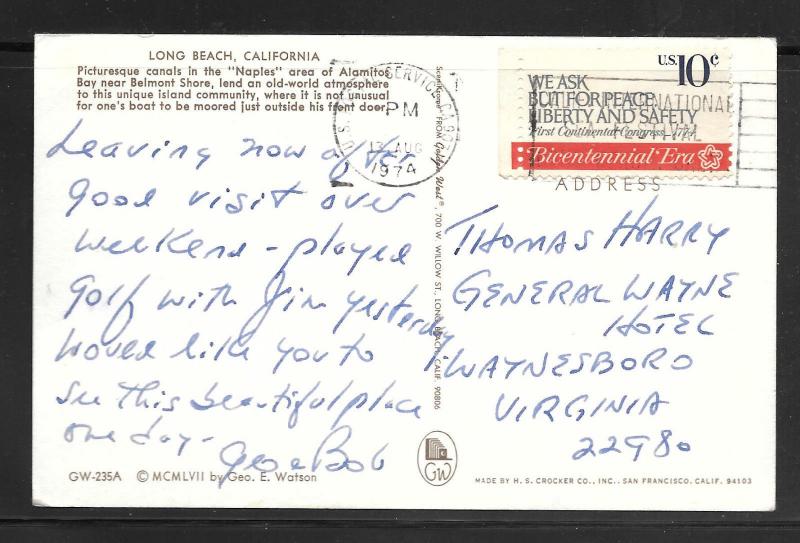 LONG BEACH, CALIFORNIA
Picturesque canals in the "Naples" area of Alamitos
Bay near Belmont Shore, lend an old-world atmosphere
to this unique island community, where it is not unusual
for one's boat to be moored just outside his front door.
Leaving now after
good visit over
weekend - played
golf with Jim yesterday
would like you to
see this beautiful place
one day -
Bob
GW-235A © MCMLVII by Geo. E. Watson
U.S. SERVICE, CA
PM
13 AUG
1974
FROM Golden West®, 700 W. WILLOW ST., LONG BEACH, CALIF. 90806
GW
U.S. 10c
WE ASK
BUT FOR PEACE,
LIBERTY AND SAFETY
First Continental Congress, 1774
Bicentennial Era
INTERNATIONAL
ADDRESS
THOMAS HARRY
GENERAL WAYNE
HOTEL
WAYNESBORO
VIRGINIA
22980
MADE BY H. S. CROCKER CO., INC., SAN FRANCISCO, CALIF. 94103